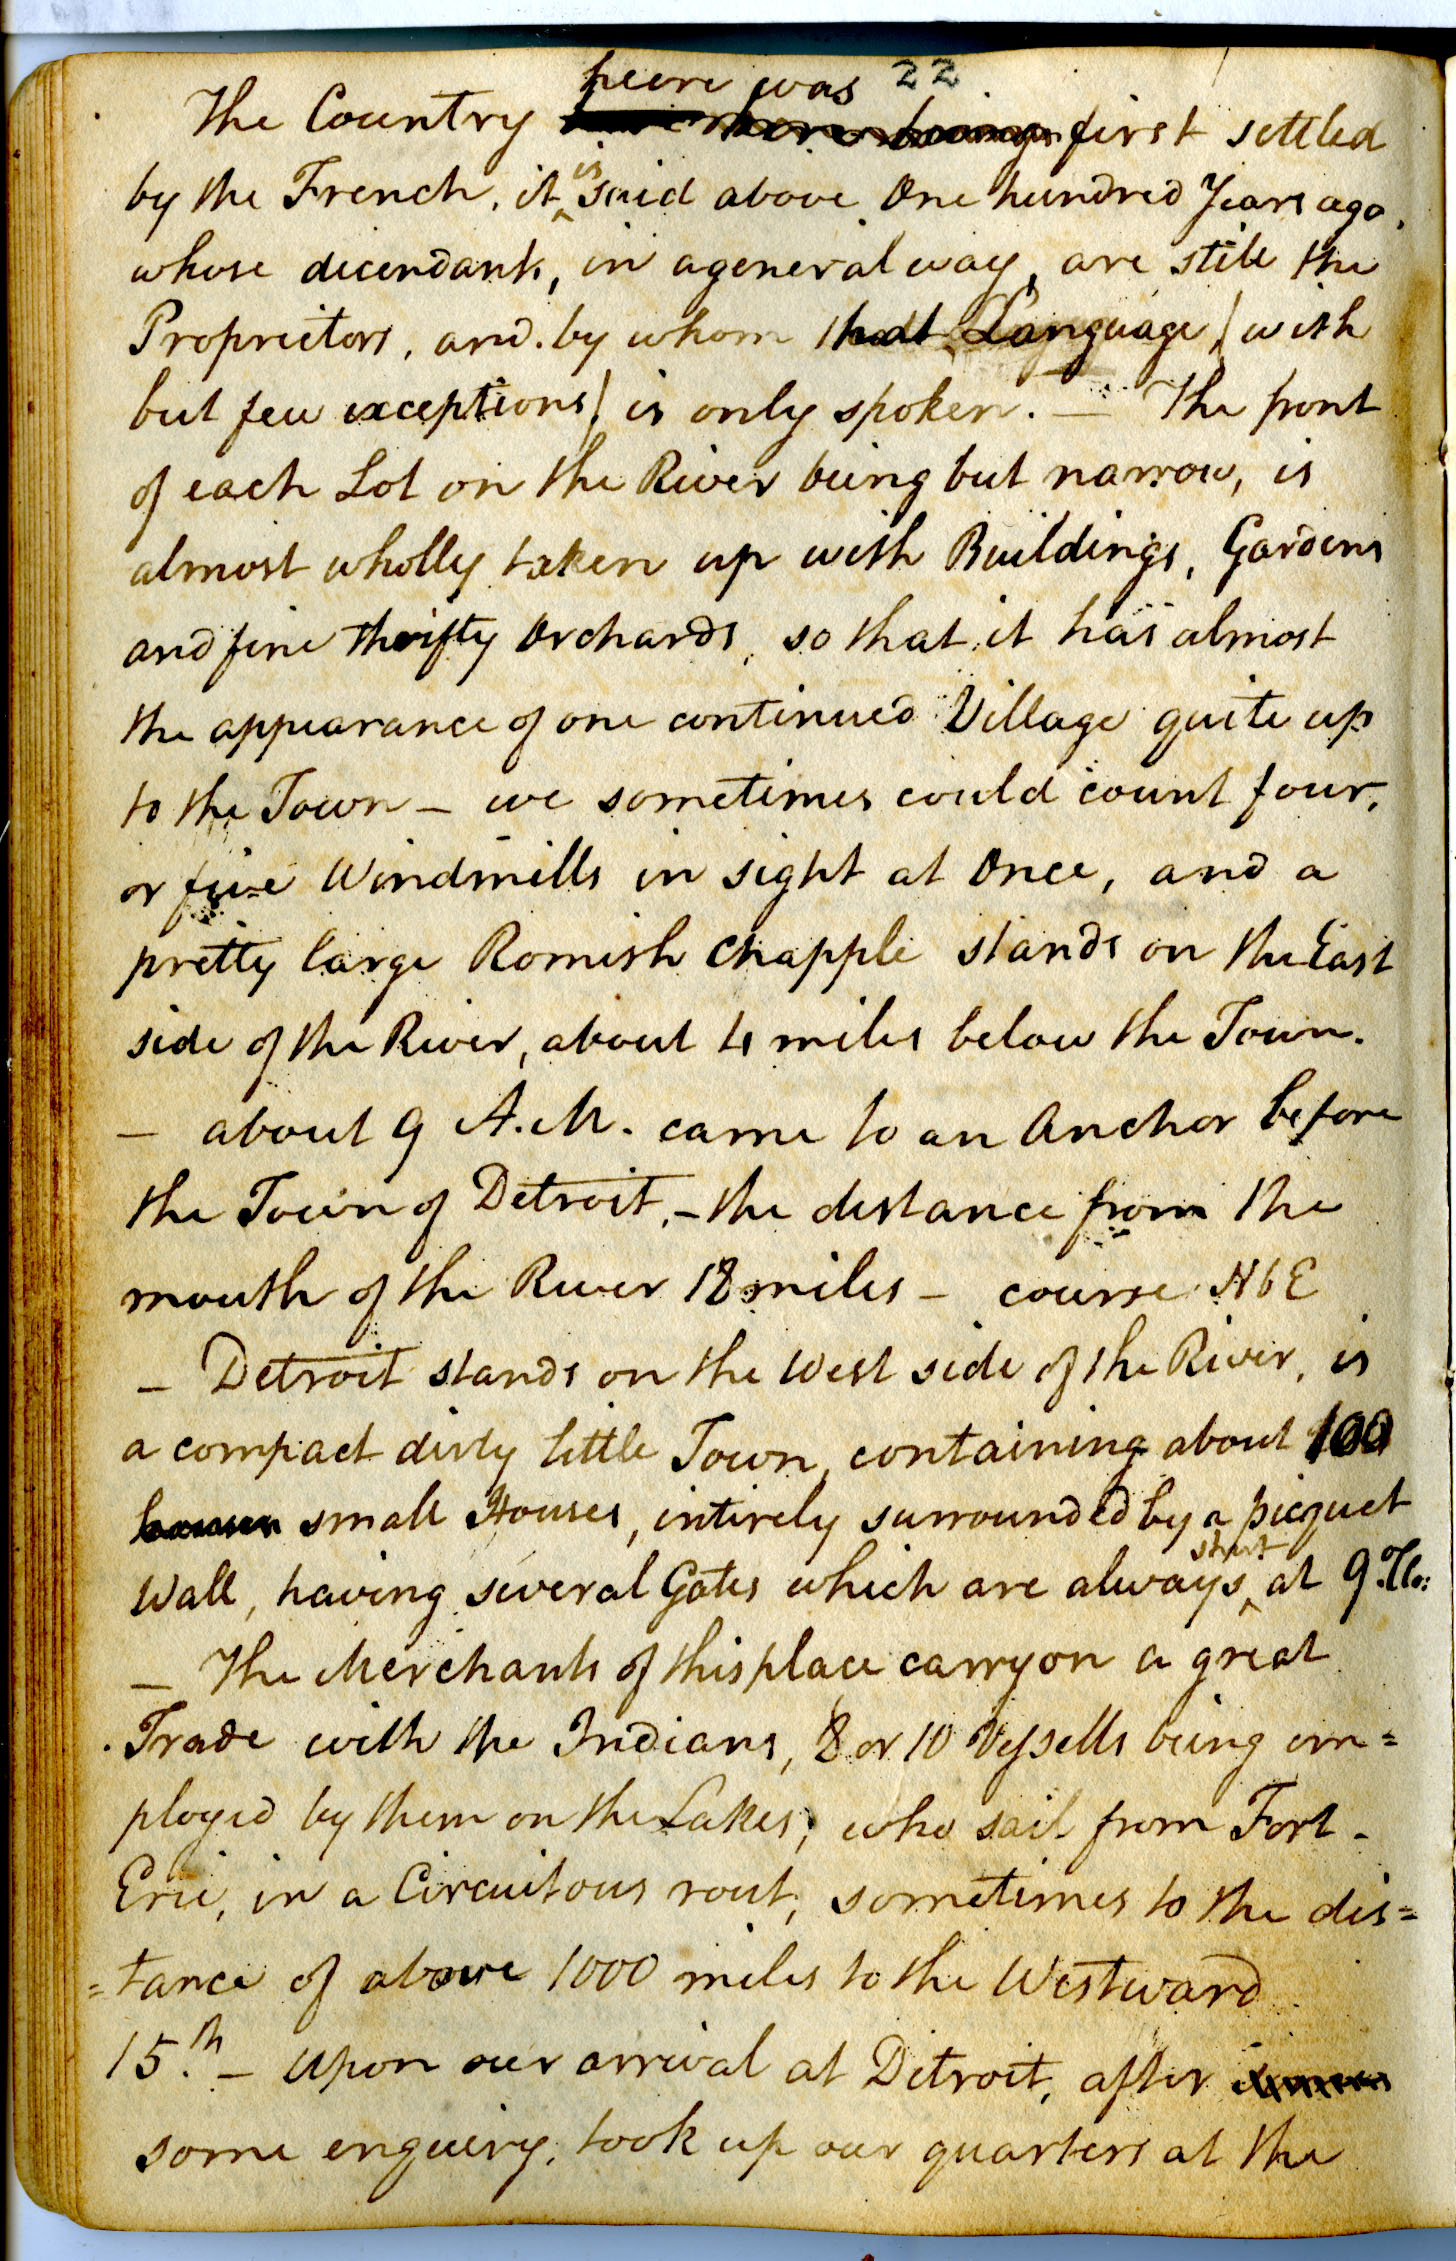 heere was 22
The Country first settled
by the French, it is said above One hundred Years ago,
whose decendants, in a general way, are still the
Proprietors, and by whom that Language / with
but few exceptions / is only spoken. — The front
of each Lot on the River being but narrow, is
almost wholly taken up with Buildings, Gardens
and fine thrifty Orchards, so that it has almost
the appearance of one continued Village quite up
to the Town — we sometimes could count four,
or five Windmills in sight at Once, and a
pretty large Romish Chapple stands on the East
side of the River, about 4 miles below the Town.
— about 9 A.M. came to an Anchor before
the Town of Detroit, — the distance from the
mouth of the River 18 miles — course N b E
— Detroit stands on the West side of the River, is
a compact dirty little Town, containing about 100
houses small Houses, intirely surrounded by a picquet
Wall, having several Gates which are always shut at 9
— The Merchants of this place carry on a great
Trade with the Indians, 8 or 10 Vessells being em=
ployed by them on the Lakes; who sail from Fort
Erie, in a Circuitous rout, sometimes to the dis=
=tance of above 1000 miles to the Westward
15th — Upon our arrival at Detroit, after
some enquiry, took up our quarters at the